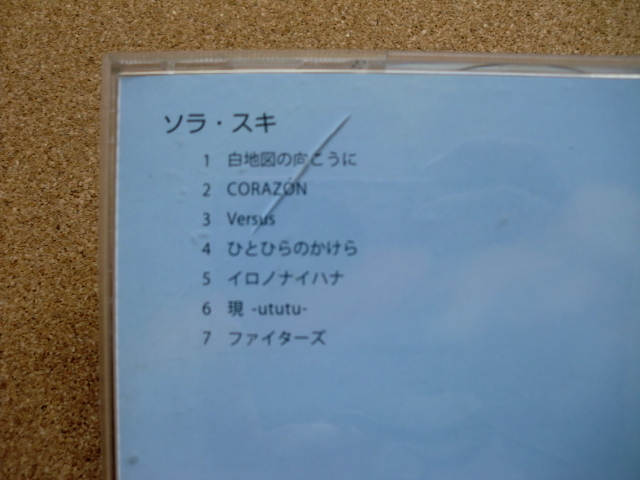 ソラ・スキ
1 白地図の向こうに
2 CORAZON
3 Versus
4 ひとひらのかけら
5 イロノナイハナ
6 現 -ututu-
7 ファイターズ